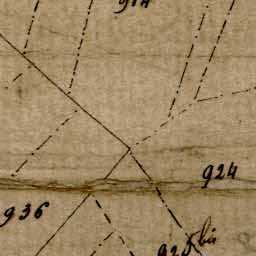 914
924
936
925 bis